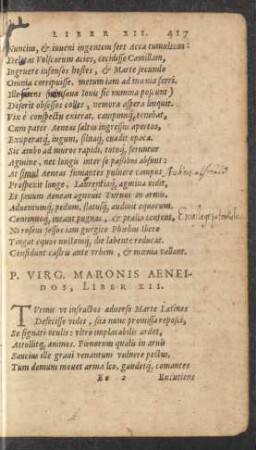 LIBER XII. 417
Nuncius, & iuueni ingentem fert Acca tumultum:
Deletas Volscorum acies, cecidisse Camillam,
Ingruere infensos hostes, & Marte secundo
Omnia corripuisse, metum iam ad mœnia ferri.
Ille furens (& sæua Iouis sic numina poscunt)
Deserit obsessos colles, nemora aspera linquit.
Vix è conspectu exierat, campumq́; tenebat,
Cum pater Aeneas saltus ingressus apertos,
Exuperatq́; iugum, siluaq́; euadit opaca.
Sic ambo ad muros rapidi, totoq́; feruntur
Agmine, nec longis inter se passibus absunt:
At simul Aeneas fumantes puluere campos
Prospexit longe, Laurentiaq́; agmina vidit,
Et sæuum Aenean agnouit Turnus in armis.
Aduentumq́; pedum, flatusq́; audiit equorum.
Continuoq́; ineant pugnas, & prælia tentent,
Ni roseus fessos iam gurgite Phœbus Ibero
Tingat equos noctemq́; die labente reducat.
Considunt castris ante vrbem, & mœnia vallant.
P. VIRG. MARONIS AENEI-
DOS, LIBER XII.
TVrnus vt infractos aduerso Marte Latinos
Defecisse videt, sua nunc promissa reposci,
Se signari oculis: vltro implacabilis ardet,
Attollitq́; animos. Pœnorum qualis in aruis
Saucius ille graui venantum vulnere pectus,
Tum demum mouet arma leo, gaudetq́; comantes
Ee 2 Excutiens